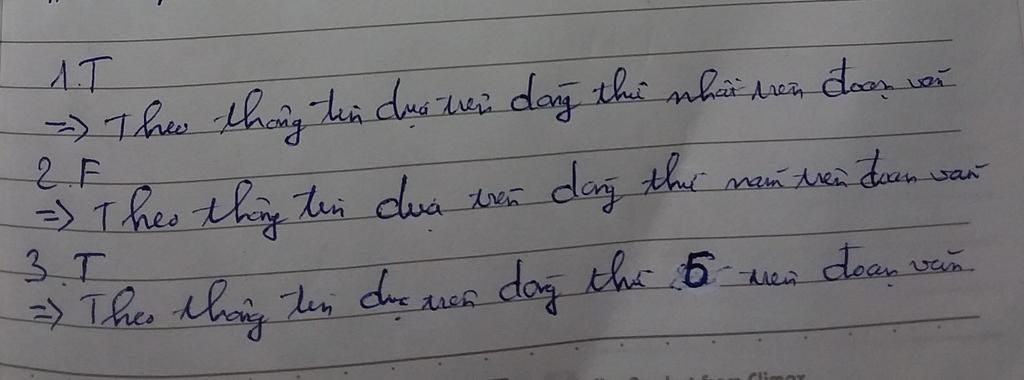 1. T
=> Theo thông tin dựa trên dòng thứ nhất trên đoạn văn
2. F
=> Theo thông tin dựa trên dòng thứ năm trên đoạn văn
3. T
=> Theo thông tin dựa trên dòng thứ 5 trên đoạn văn